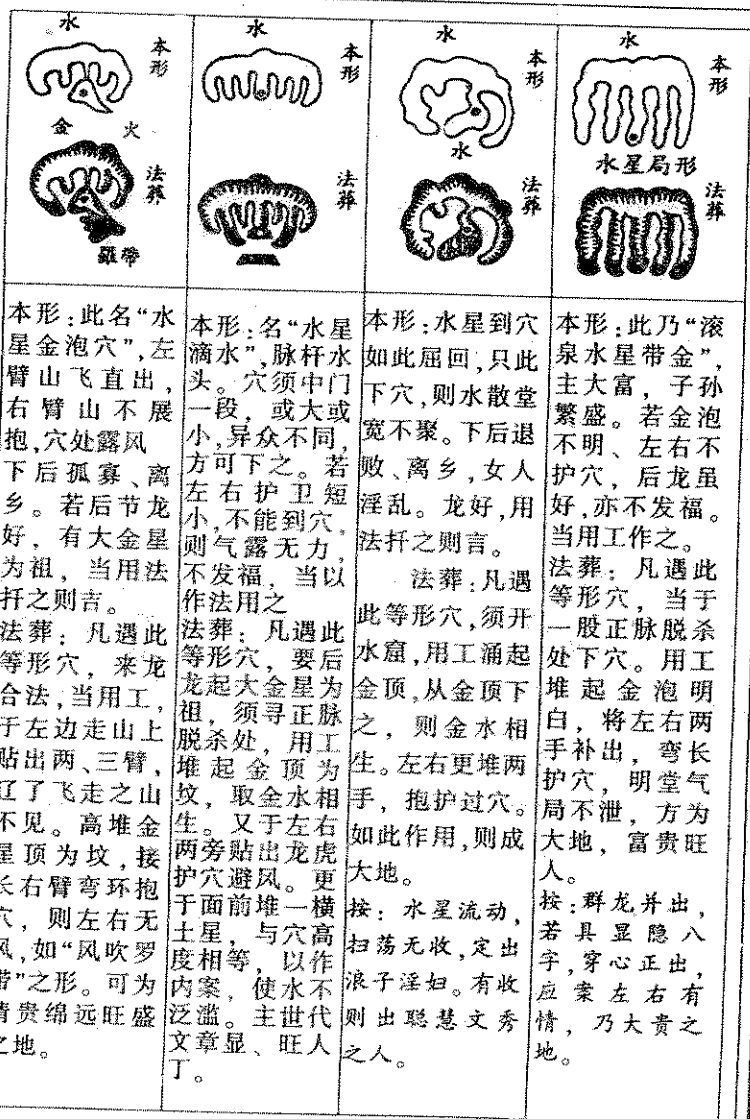 水
本形
金 火
法葬
羅帶
本形:此名“水
星金泡穴”,左
臂山飞直出,
右臂山不展
抱,穴处露风
下后孤寡、离
乡。若后节龙
好,有大金星
为祖,当用法
扦之则吉。
法葬:凡遇此
等形穴,来龙
合法,当用工,
于左边走山上
贴出两、三臂,
了飞走之山
不见。高堆金
星顶为坟,接
长右臂弯环抱
穴,则左右无
风,如“风吹罗
带”之形。可为
清贵绵远旺盛
之地。
水
本形
法葬
本形:名“水星
滴水”,脉杆水
头。穴须中门
一段,或大或
小,异众不同,
方可下之。若
左右护卫短
小,不能到穴,
则气露无力,
不发福,当以
作法用之
法葬:凡遇此
等形穴,要后
龙起大金星为
祖,须寻正脉
脱杀处,用工
堆起金顶为
坟,取金水相
生。又于左右
两旁贴出龙虎
护穴避风。更
于面前堆一横
土星,与穴高
度相等,以作
内案,使水不
泛滥。主世代
文章显、旺人
丁。
水
本形
水
法葬
本形:水星到穴
如此屈回,只此
下穴,则水散堂
宽不聚。下后退
败、离乡,女人
淫乱。龙好,用
法扦之则言。
法葬:凡遇
此等形穴,须开
水窟,用工涌起
金顶,从金顶下
之,则金水相
生。左右更堆两
手,抱护过穴。
如此作用,则成
大地。
按:水星流动,
扫荡无收,定出
浪子淫妇。有收
则出聪慧文秀
之人。
水
本形
水星局形
法葬
本形:此乃“滚
泉水星带金”,
主大富,子孙
繁盛。若金泡
不明、左右不
护穴,后龙虽
好,亦不发福。
当用工作之。
法葬:凡遇此
等形穴,当于
一股正脉脱杀
处下穴。用工
堆起金泡明
白,将左右两
手补出,弯长
护穴,明堂气
局不泄,方为
大地,富贵旺
人。
按:群龙并出,
若具显隐八
字,穿心正出,
应案左右有
情,乃大贵之
地。